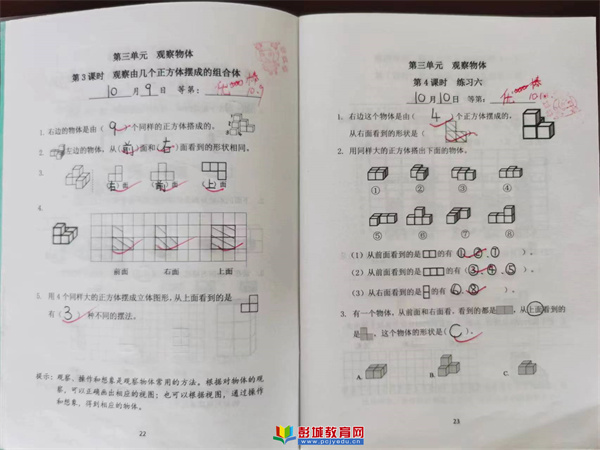 第三单元 观察物体
第3课时 观察由几个正方体摆成的组合体
10月9日 等第:
10.9
1. 右边的物体是由(9)个同样的正方体搭成的。
2. 左边的物体,从(前)面和(右)面看到的形状相同。
3.
(右)面 (前)面 (上)面
4.
前面 右面 上面
5. 用4个同样大的正方体摆成立体图形,从上面看到的是
有(3)种不同的摆法。
提示:观察、操作和想象是观察物体常用的方法。根据对物体的观
察,可以正确画出相应的视图;也可以根据视图,通过操作
和想象,得到相应的物体。
22
第三单元 观察物体
第4课时 练习六
10月10日 等第:
1. 右边这个物体是由(4)个正方体摆成的,
从右面看到的形状是( )。
2. 用同样大的正方体搭出下面的物体。
① ② ③ ④
⑤ ⑥ ⑦ ⑧
(1)从前面看到的是 的有( )。
(2)从前面看到的是 的有(③、④、⑤)。
(3)从右面看到的是 的有(⑥、⑧)。
3. 有一个物体,从前面和右面看,看到的都是 ,从上面看到的
是 ,这个物体的形状是(C)。
A. B. C.
23
彭城教育网
www.pcjyedu.cn